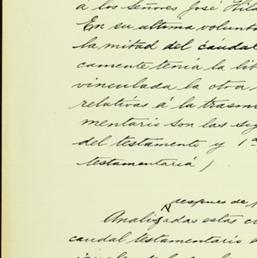 á los Señores José Vil
En su ultima volunt
la mitad del caudal
camente tenía la lib
vinculada la otra
relativas á la trasm
mentario son las sig
del testamento y 1ª
testamentaria)
despues de
Analizadas estas c
caudal testamentario